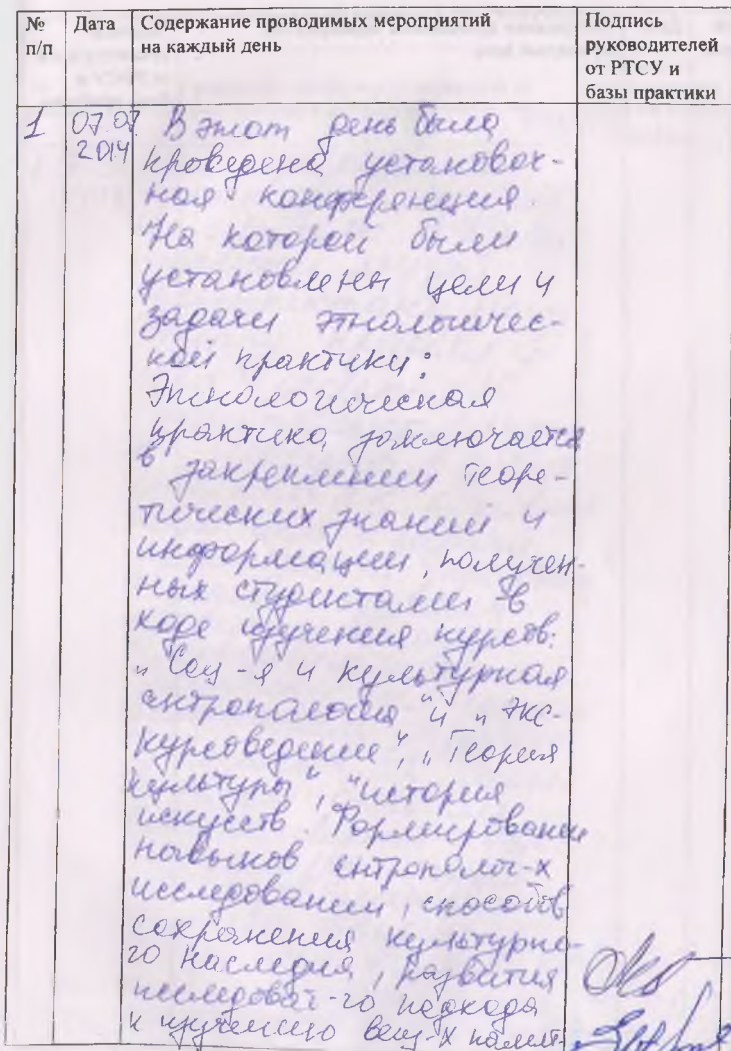 № п/п
Дата
Содержание проводимых мероприятий
на каждый день
Подпись
руководителей
от РТСУ и
базы практики
1
07.07
2014
В этот день была
проведена установоч-
ная конференция.
На которой были
установлены цели и
задачи этнологичес-
кой практики:
Этнологическая
практика заключается
в закреплении теоре-
тических знаний и
информации, получен-
ных студентами в
ходе изучения курсов:
„Соц-я и культурная
антропология“ и „Экс-
курсоведение“, „Теория
культуры“, “история
искусств. Формировании
навыков антрополог-х
исследовании, способов
сохранения культурно-
го наследия, развития
исследоват-го подхода
к изучению вещ-х памят-